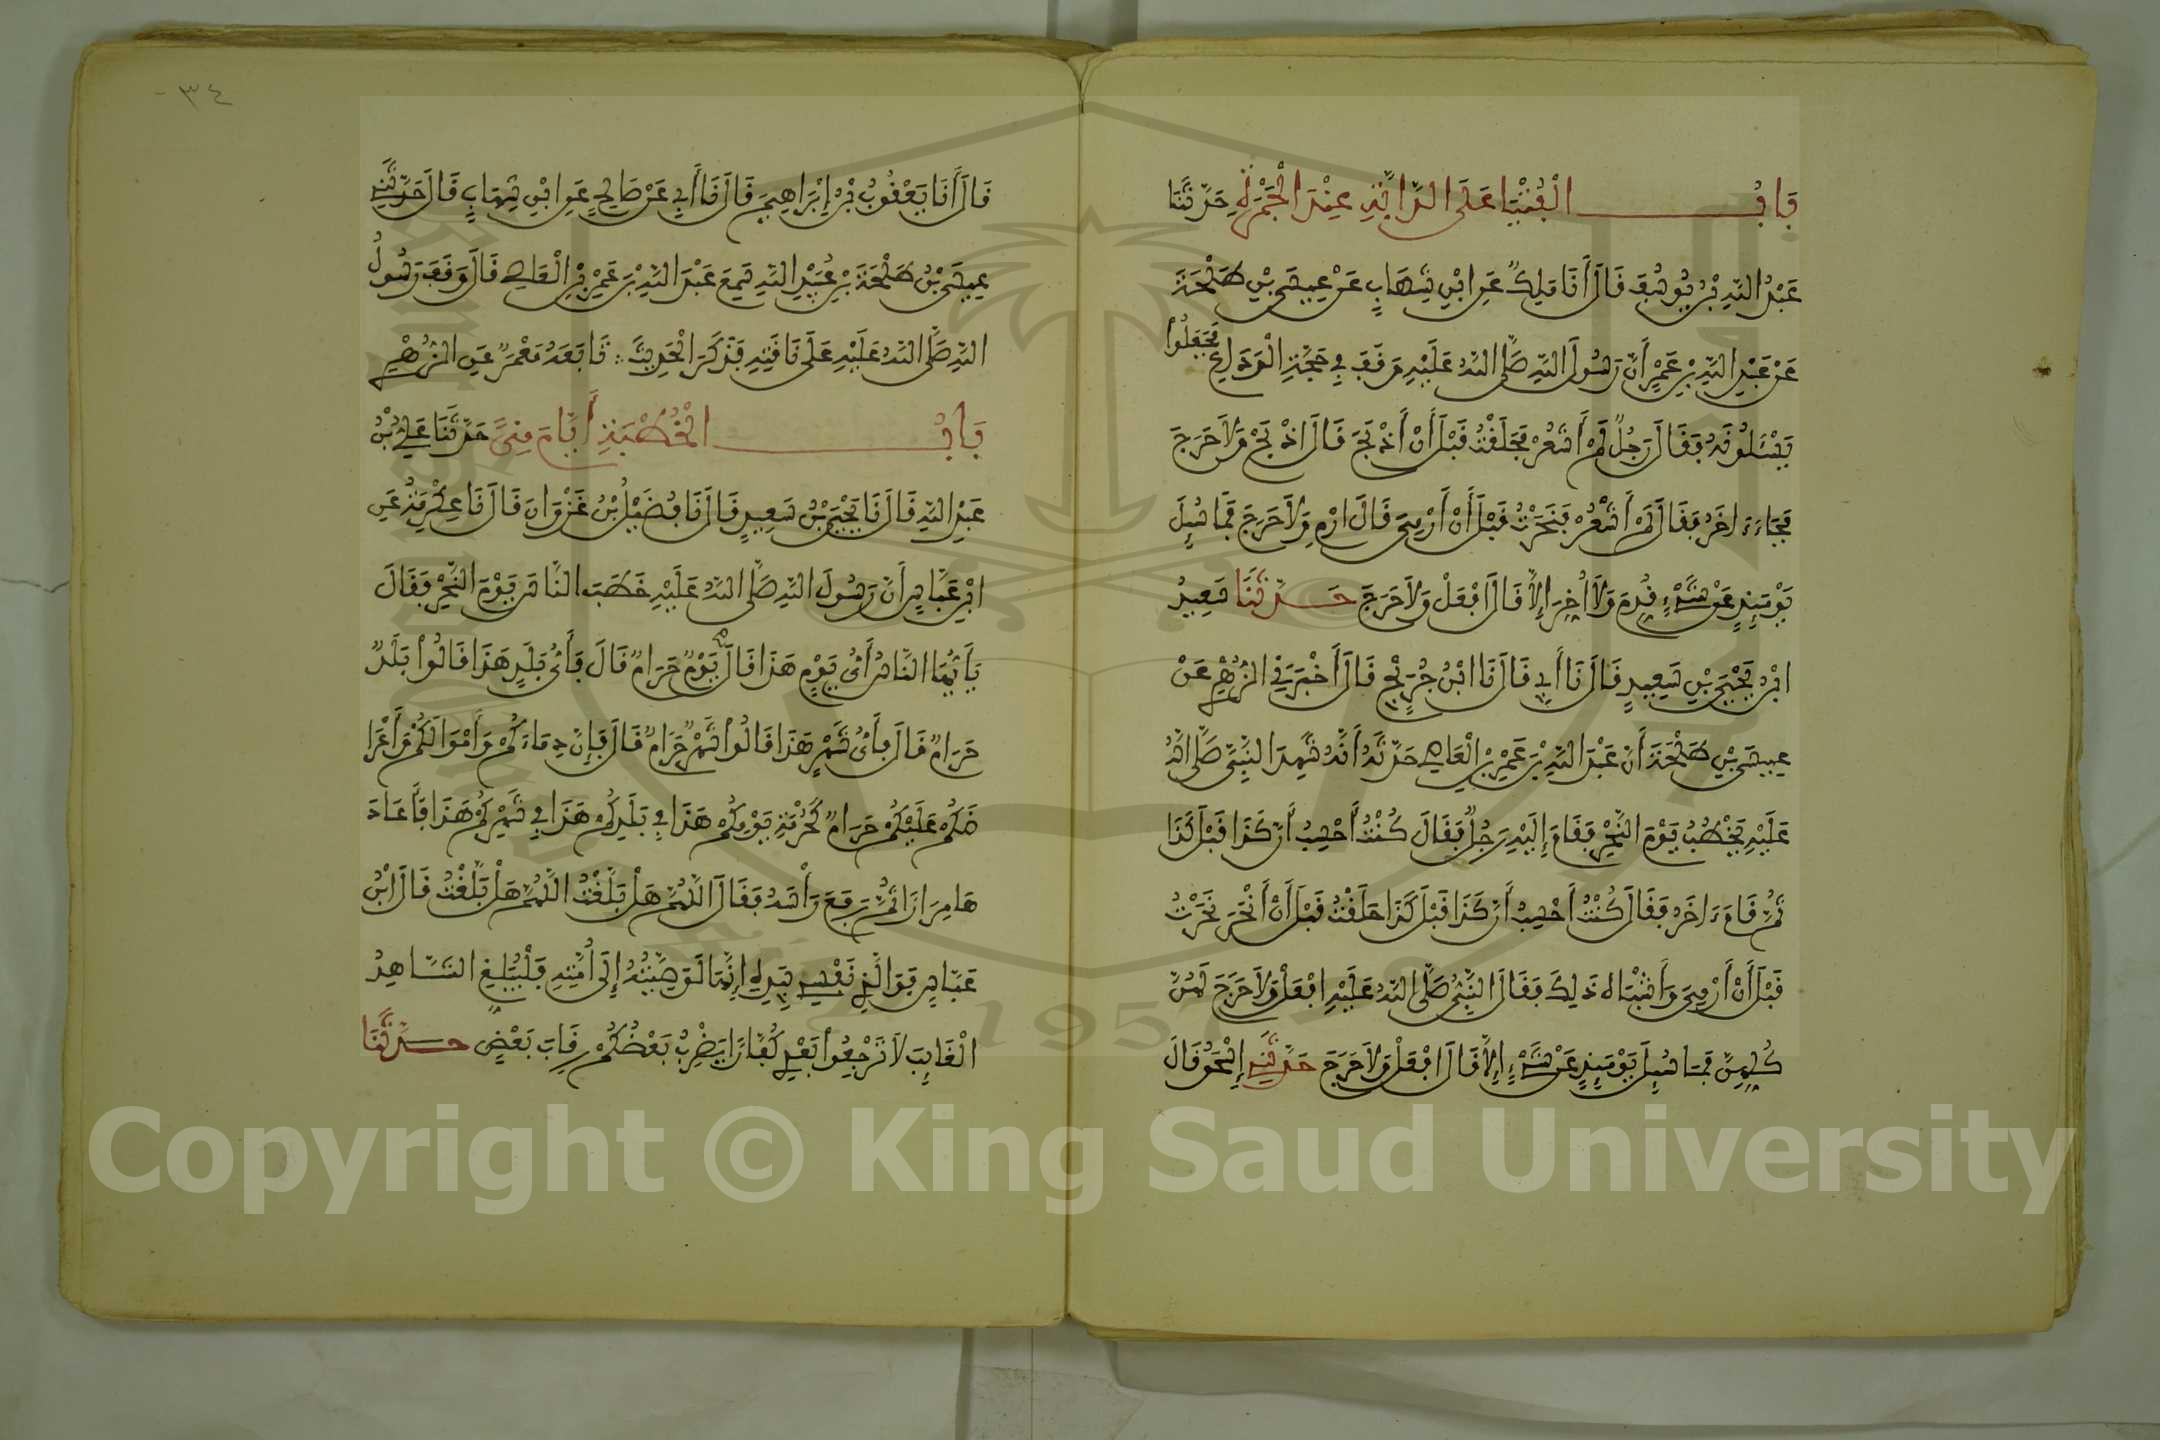 بَابُ الْفُتْيَا عَلَى الدَّابَّةِ عِنْدَ الْجَمْرَةِ حَدَّثَنَا
عَبْدُ اللَّهِ بْنُ يُوسُفَ قَالَ أَنَا مَلِكٌ عَنِ ابْنِ شِهَابٍ عَنْ عِيسَى بْنِ طَلْحَةَ
عَنْ عَبْدِ اللَّهِ بْنِ عَمْرٍ أَنَّ رَسُولَ اللَّهِ صَلَّى اللَّهُ عَلَيْهِ وَقَفَ فِي حَجَّةِ الْوَدَاعِ فَجَعَلُوا
يَسْئَلُونَهُ فَقَالَ رَجُلٌ لَمْ أَشْعُرْ فَحَلَقْتُ قَبْلَ أَنْ أَذْبَحَ قَالَ اذْبَحْ وَلَا حَرَجَ
فَجَاءَ اخَرُ فَقَالَ لَمْ أَشْعُرْ فَنَحَرْتُ قَبْلَ أَنْ أَرْمِيَ قَالَ ارْمِ وَلَا حَرَجَ فَمَا سُئِلَ
يَوْمَئِذٍ عَنْ شَيْءٍ قُدِّمَ وَلَا أُخِّرَ إِلَّا قَالَ افْعَلْ وَلَا حَرَجَ حَدَّثَنَا سَعِيدُ
ابْنُ يَحْيَى بْنِ سَعِيدٍ قَالَ نَا أَبِي قَالَ نَا ابْنُ جُرَيْجٍ قَالَ أَخْبَرَنِي الزُّهْرِي عَنْ
عِيسَى بْنِ طَلْحَةَ أَنَّ عَبْدَ اللَّهِ بْنَ عَمْرِ بْنِ الْعَاصِي حَدَّثَهُ أَنَّهُ شَهِدَ النَّبِيَّ صَلَّى اللَّهُ
عَلَيْهِ يَخْطُبُ يَوْمَ النَّحْرِ فَقَامَ إِلَيْهِ رَجُلٌ فَقَالَ كُنْتُ أَحْسِبُ أَنَّ كَذَا قَبْلَ كَذَا
ثُمَّ قَامَ اخَرُ فَقَالَ كُنْتُ أَحْسِبُ أَنَّ كَذَا قَبْلَ كَذَا حَلَقْتُ قَبْلَ أَنْ أَنْحَرَ نَحَرْتُ
قَبْلَ أَنْ أَرْمِيَ وَأَشْبَاهَ ذَلِكَ فَقَالَ النَّبِيُّ صَلَّى اللَّهُ عَلَيْهِ افْعَلْ وَلَا حَرَجَ لَهُنَّ
كُلِّهِنَّ فَمَا سُئِلَ يَوْمَئِذٍ عَنْ شَيْءٍ إِلَّا قَالَ افْعَلْ وَلَا حَرَجَ حَدَّثَنِي إِسْحَقُ قَالَ
٣٤
قَالَ أَنَا يَعْقُوبُ بْنُ إِبْرَاهِيمَ قَالَ نَا أَبِي عَنْ صَالِحٍ عَنِ ابْنِ شِهَابٍ قَالَ حَدَّثَنِي
عِيسَى بْنُ طَلْحَةَ بْنِ عُبَيْدِ اللَّهِ سَمِعَ عَبْدَ اللَّهِ بْنَ عَمْرِ بْنِ الْعَاصِي قَالَ وَقَفَ رَسُولُ
اللَّهِ صَلَّى اللَّهُ عَلَيْهِ عَلَى نَاقَتِهِ فَذَكَرَ الْحَدِيثَ ∴ تَابَعَهُ مَعْمَرٌ عَنِ الزُّهْرِي
بَابُ الْخُطْبَةِ أَيَّامَ مِنًى حَدَّثَنَا عَلِيُّ بْنُ
عَبْدِ اللَّهِ قَالَ نَا يَحْيَى بْنُ سَعِيدٍ قَالَ نَا فُضَيْلُ بْنُ غَزْوَانَ قَالَ نَا عِكْرِمَةُ عَنِ
ابْنِ عَبَّاسٍ أَنَّ رَسُولَ اللَّهِ صَلَّى اللَّهُ عَلَيْهِ خَطَبَ النَّاسَ يَوْمَ النَّحْرِ فَقَالَ
يَأَيُّهَا النَّاسُ أَيُّ يَوْمٍ هَذَا قَالَ يَوْمٌ حَرَامٌ قَالَ فَأَيُّ بَلَدٍ هَذَا قَالُوا بَلَدٌ
حَرَامٌ قَالَ فَأَيُّ شَهْرٍ هَذَا قَالُوا شَهْرٌ حَرَامٌ قَالَ فَإِنَّ دِمَاءَكُمْ وَأَمْوَالَكُمْ وَأَعْرَا
ضَكُمْ عَلَيْكُمْ حَرَامٌ كَحُرْمَةِ يَوْمِكُمْ هَذَا فِي بَلَدِكُمْ هَذَا فِي شَهْرِكُمْ هَذَا فَأَعَادَ
هَا مِرَارًا ثُمَّ رَفَعَ رَأْسَهُ فَقَالَ اللَّهُمَّ هَلْ بَلَّغْتُ اللَّهُمَّ هَلْ بَلَّغْتُ قَالَ ابْنُ
عَبَّاسٍ فَوَالَّذِي نَفْسِي بِيَدِهِ إِنَّهَا لَوَصِيَّتُهُ إِلَى أُمَّتِهِ فَلْيُبَلِّغِ الشَّاهِدُ
الْغَائِبَ لَا تَرْجِعُوا بَعْدِي كُفَّارًا يَضْرِبُ بَعْضُكُمْ رِقَابَ بَعْضٍ حَدَّثَنَا
Copyright © King Saud University